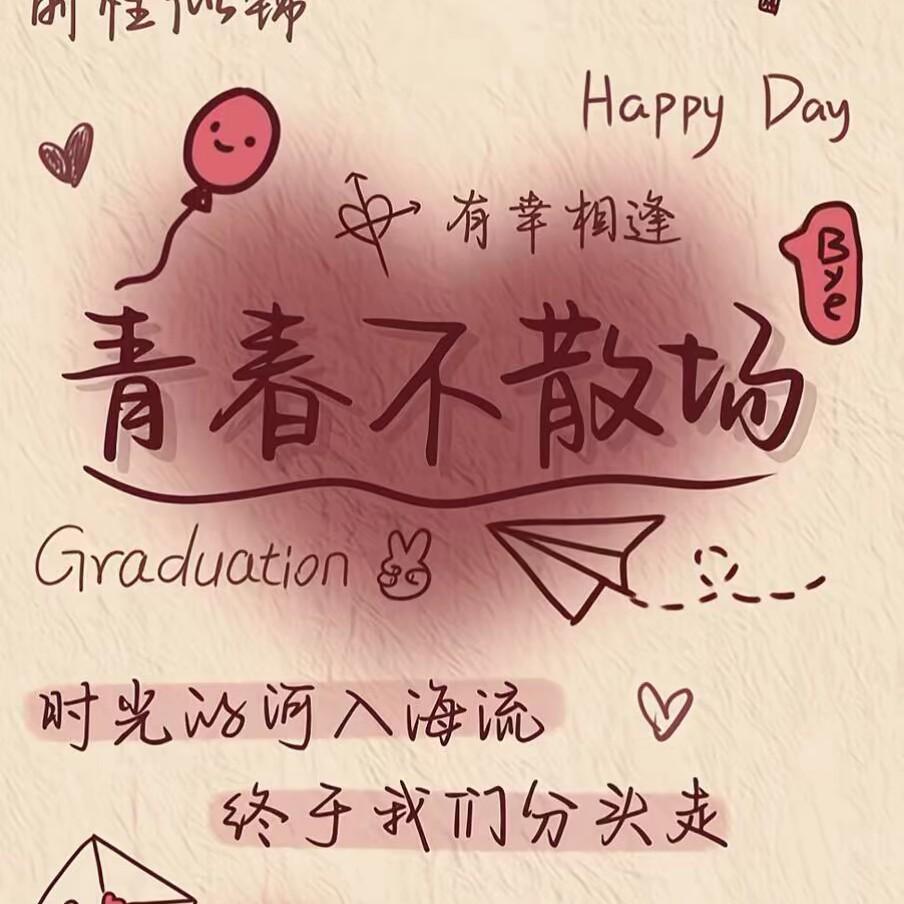 前程似锦
Happy Day
有幸相逢
Bye
青春不散场
Graduation
时光的河入海流
终于我们分头走